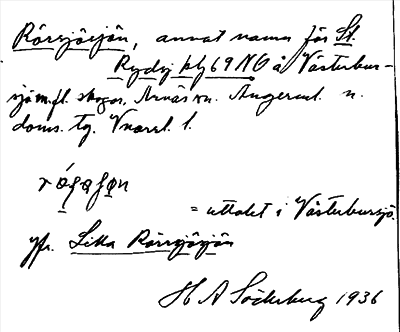 Rörsjösjön, annat namn för St.
Rydsj kbl 69 NO å Västerbur-
sjö m.fl. skogar, Arnäs sn. Ångerml. n.
doms. tg. Vnorrl. l.
= uttalet i Västerbursjö.
Jfr. Lilla Rörsjösjön
H A Söderberg 1936